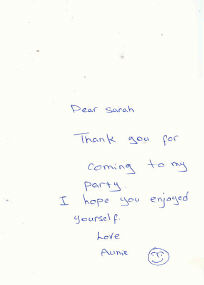 Dear Sarah
Thank you for
coming to my
party.
I hope you enjoyed
yourself.
Love